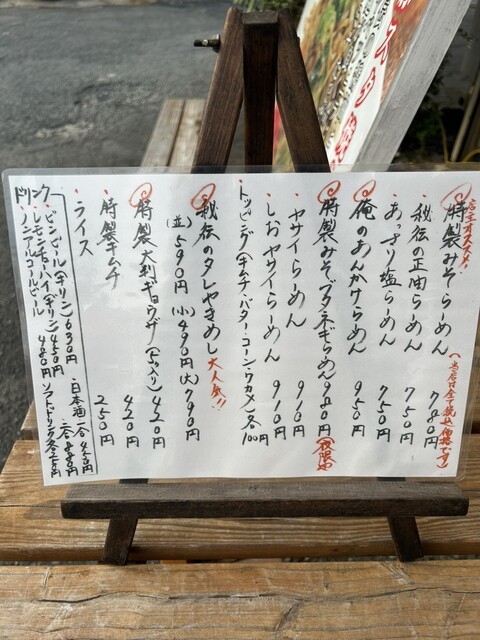 店主オススメ!
特製みそらーめん 780円
(当店は全て税込価格です)
・秘伝の正油らーめん 750円
・あっさり塩らーめん 750円
俺のあんかけらーめん 950円
特製みそブタネギらーめん 980円 (夜限定)
・ヤサイらーめん 910円
・しおヤサイらーめん 910円
・トッピング(キムチ・バター・コーン・ワカメ)各100円
秘伝のタレやきめし 大人気!!
(並)590円 (小)490円 (大)790円
特製大判ギョウザ 420円
・特製キムチ 420円
・ライス 250円
ドリンク
・ビンビール(キリン) 630円
・レモンチューハイ(キリン) 450円
・ノンアルコールビール 480円
・日本酒 一合 450円
二合 880円
ソフトドリンク各